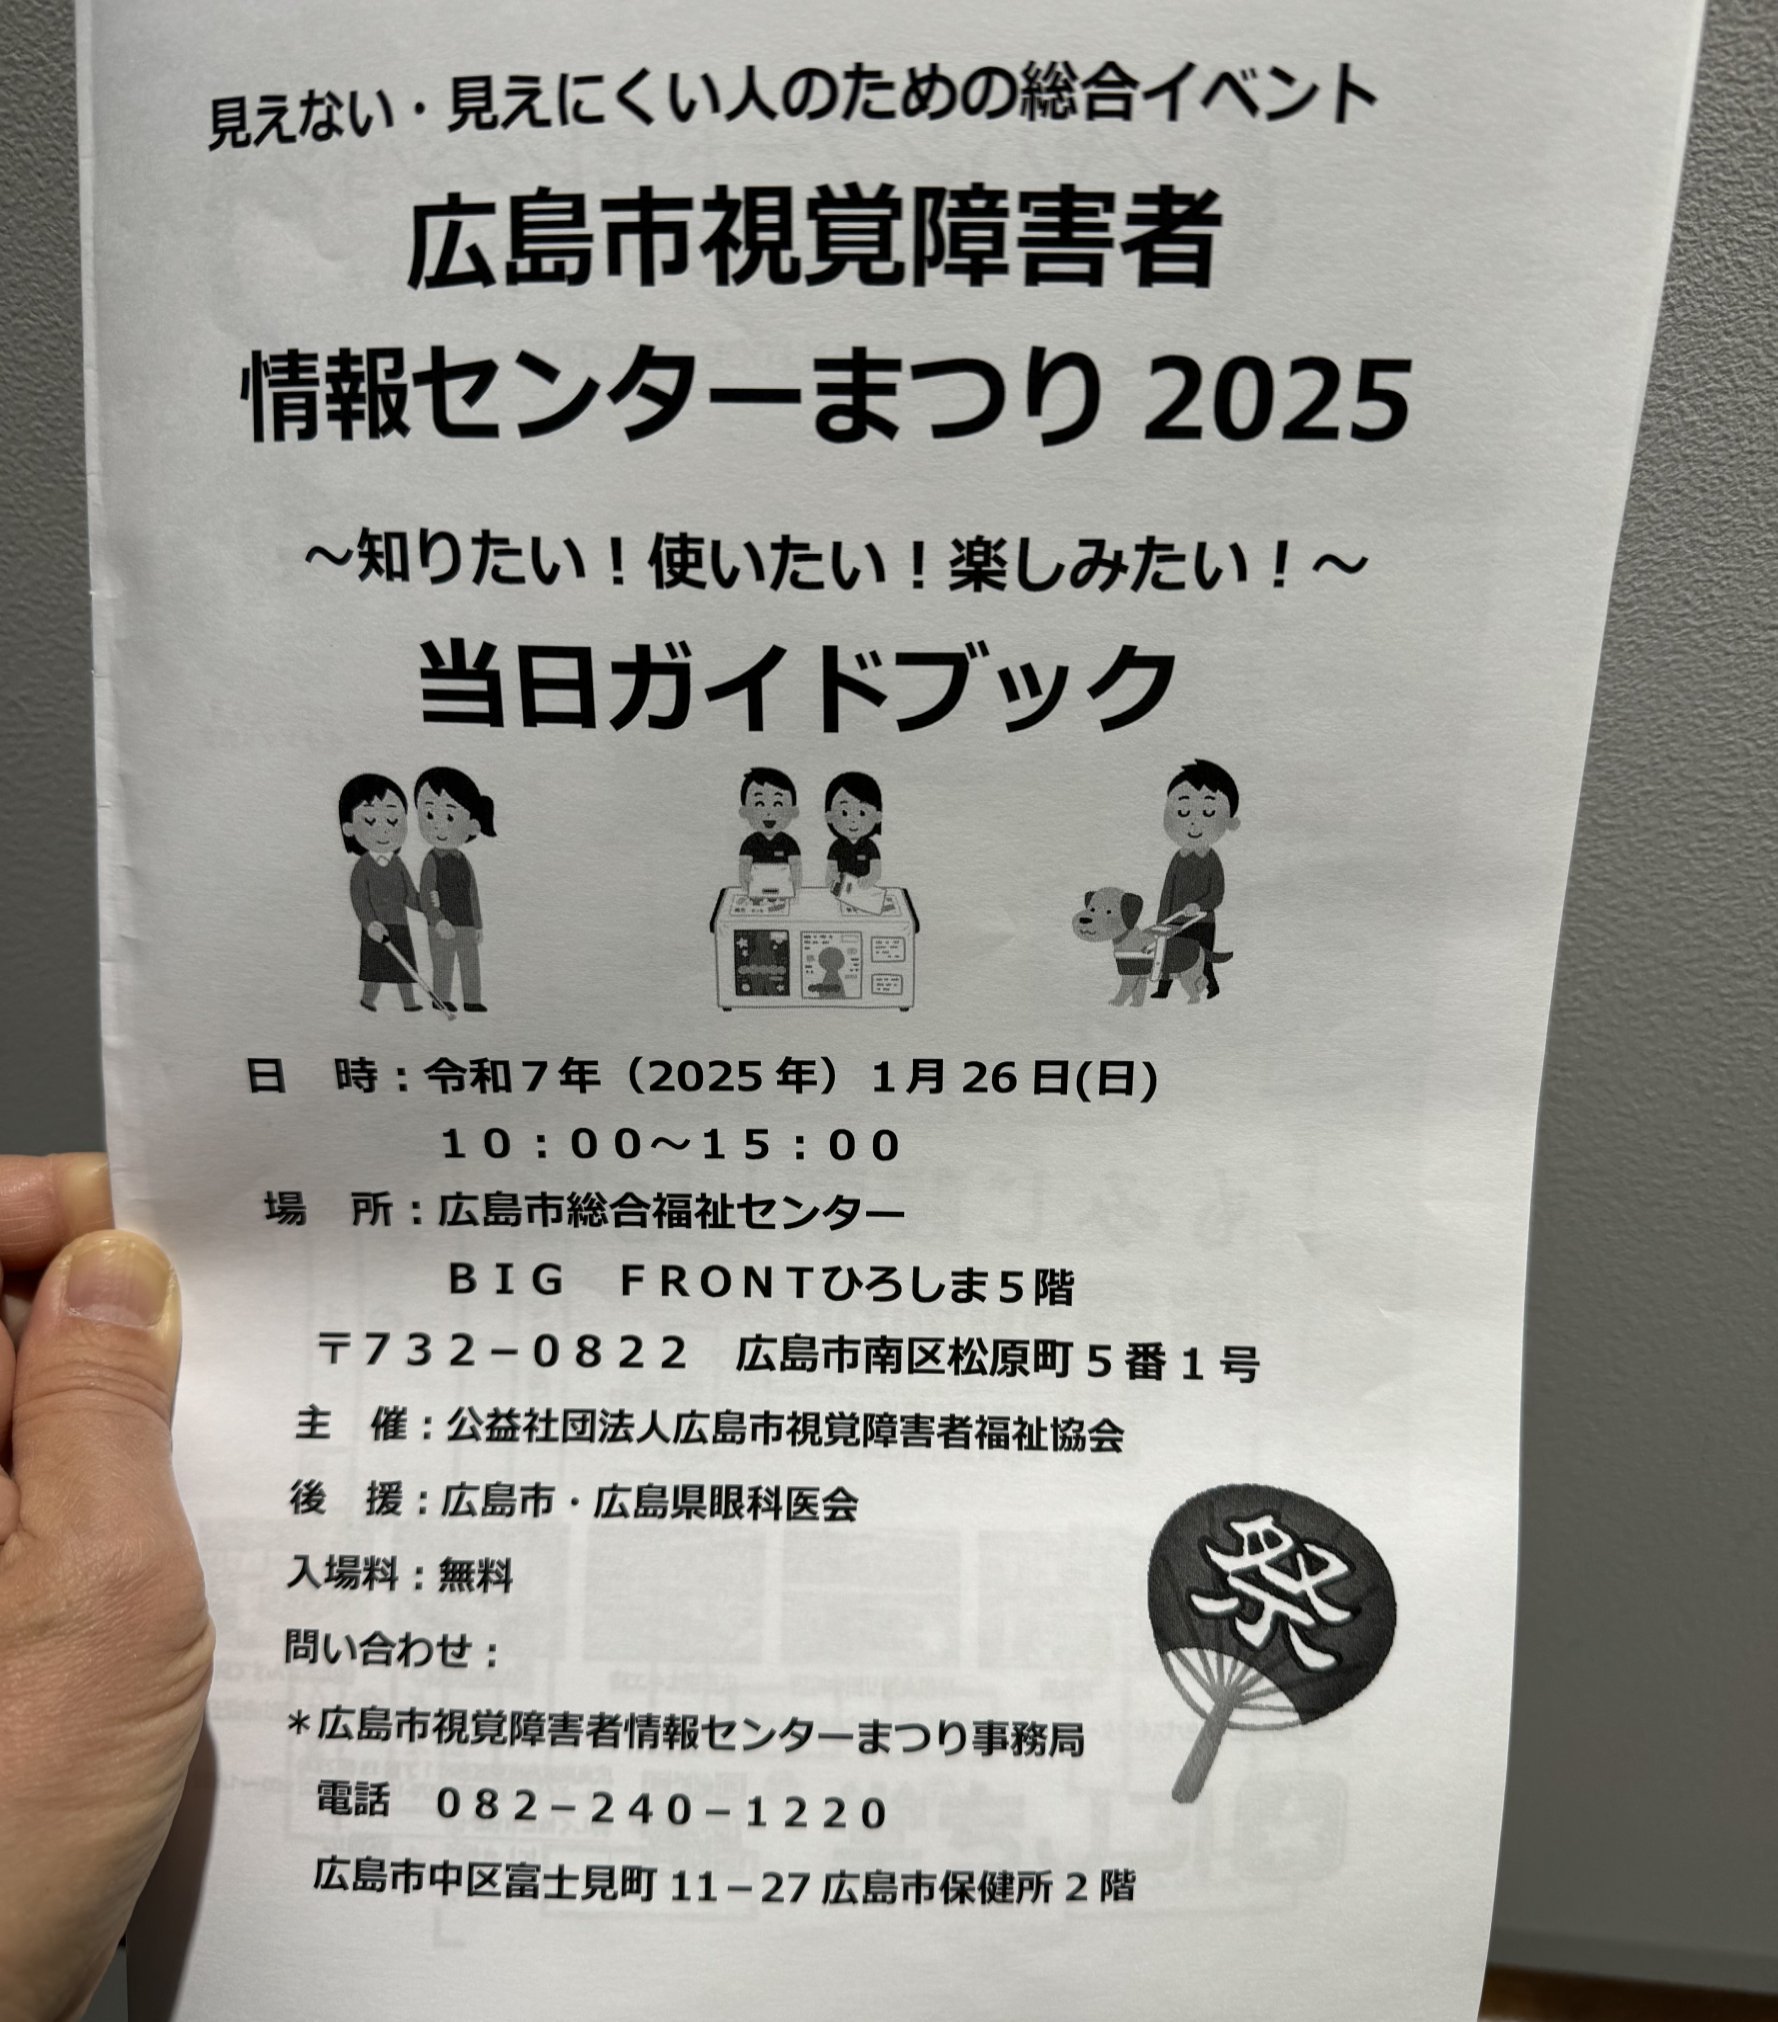 見えない・見えにくい人のための総合イベント
広島市視覚障害者
情報センターまつり 2025
～知りたい！使いたい！楽しみたい！～
当日ガイドブック
日　時：令和７年（2025 年）１月 26 日(日)
１０：００～１５：００
場　所：広島市総合福祉センター
ＢＩＧ　ＦＲＯＮＴひろしま５階
〒７３２－０８２２　広島市南区松原町５番１号
主　催：公益社団法人広島市視覚障害者福祉協会
後　援：広島市・広島県眼科医会
入場料：無料
問い合わせ：
祭
＊広島市視覚障害者情報センターまつり事務局
電話　０８２－２４０－１２２０
広島市中区富士見町 11－27 広島市保健所２階